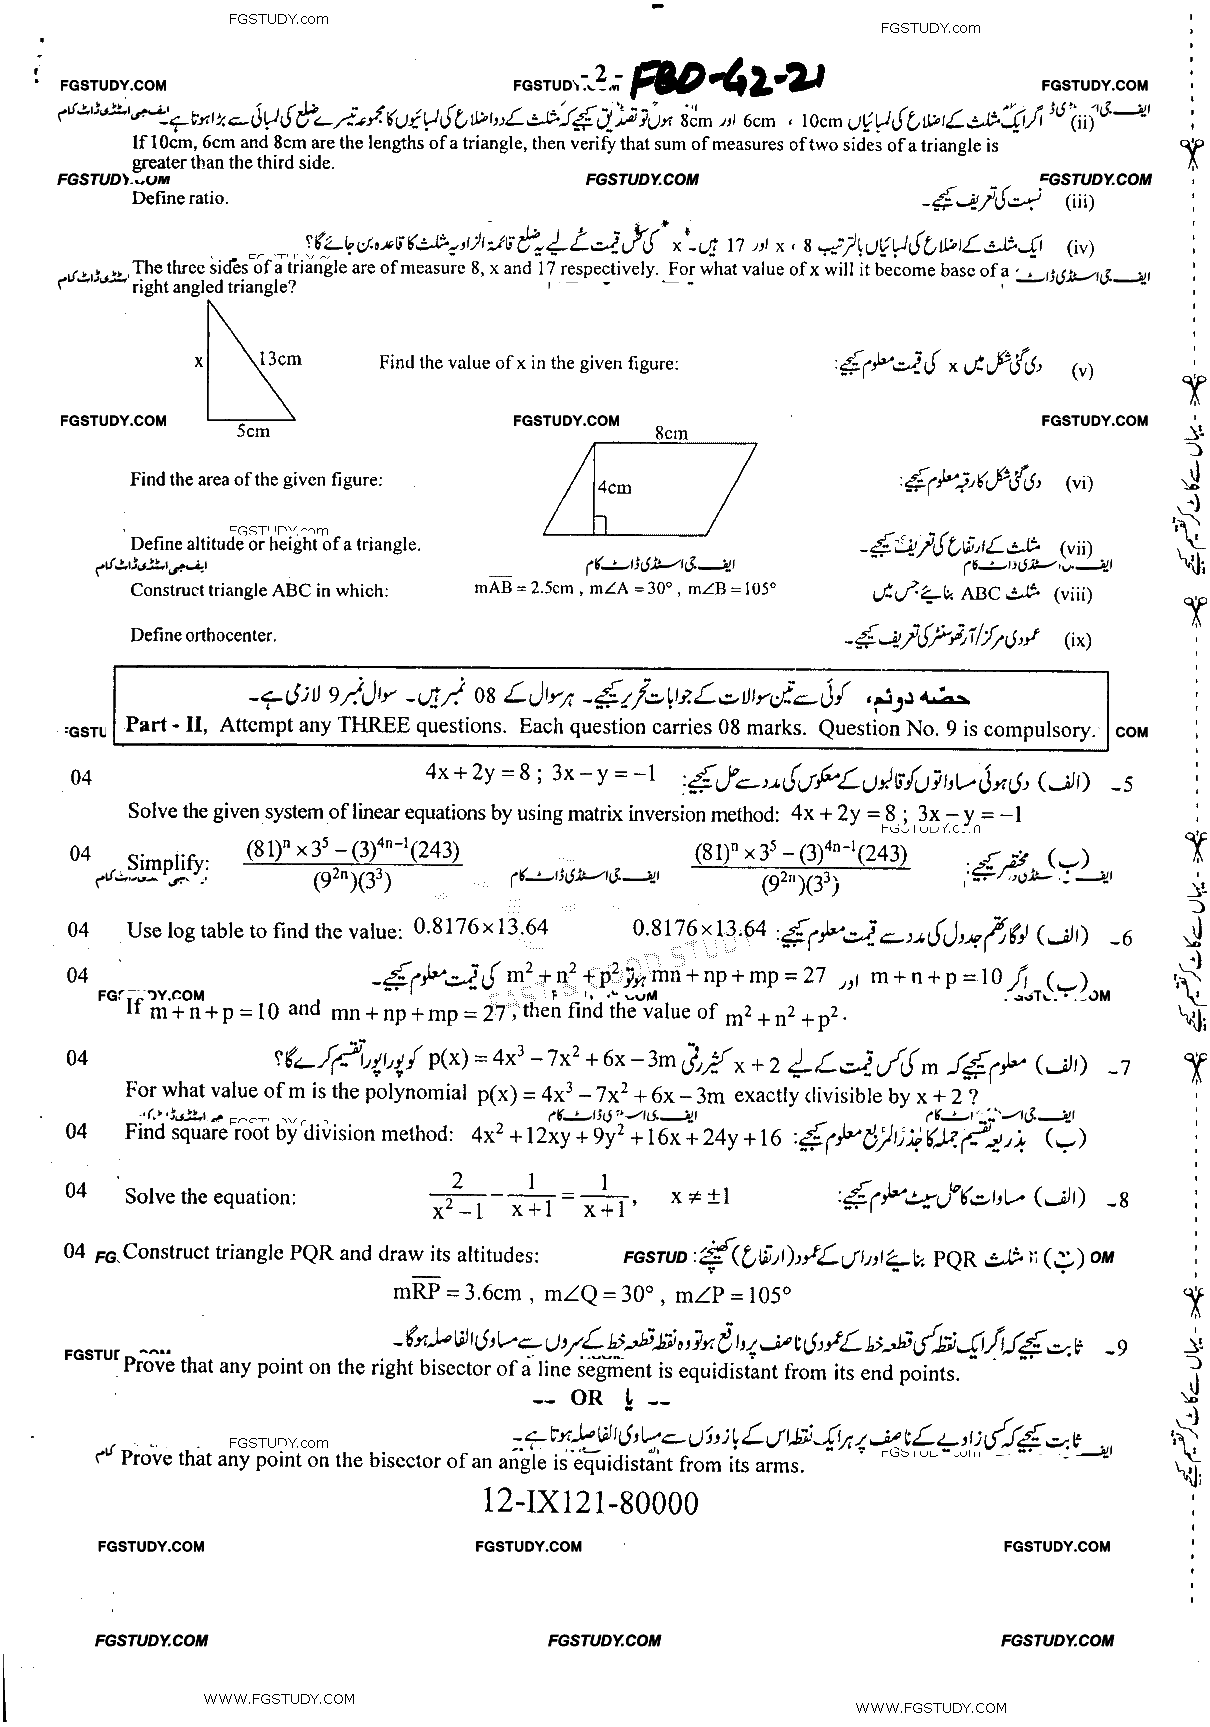 FGSTUDY.com
FGSTUDY.com
- 2 - FBD-G2-21
FGSTUDY.COM FGSTUDY.COM
(ii) اگر ایک مثلث کے اضلاع کی لمبائیاں 10cm ، 6cm اور 8cm ہوں تو تصدیق کیجیے کہ مثلث کے دو اضلاع کی لمبائیوں کا مجموعہ تیسرے ضلع کی لمبائی سے بڑا ہوتا ہے۔
If 10cm, 6cm and 8cm are the lengths of a triangle, then verify that sum of measures of two sides of a triangle is
greater than the third side.
FGSTUDY.COM FGSTUDY.COM FGSTUDY.COM
Define ratio. نسبت کی تعریف کیجیے۔ (iii)
(iv) ایک مثلث کے اضلاع کی لمبائیاں بالترتیب 8 ، x اور 17 ہیں۔ x کی کس قیمت کے لیے یہ ضلع قائمۃ الزاویہ مثلث کا قاعدہ بن جائے گا؟
The three sides of a triangle are of measure 8, x and 17 respectively. For what value of x will it become base of a
right angled triangle?
x 13cm 5cm
Find the value of x in the given figure: دی گئی شکل میں x کی قیمت معلوم کیجیے: (v)
FGSTUDY.COM FGSTUDY.COM FGSTUDY.COM
8cm
4cm
Find the area of the given figure: دی گئی شکل کا رقبہ معلوم کیجیے: (vi)
FGSTUDY.com
Define altitude or height of a triangle. مثلث کے ارتفاع کی تعریف کیجیے۔ (vii)
ایف جی اسٹڈی ڈاٹ کام
Construct triangle ABC in which: mAB̅ = 2.5cm , m∠A = 30° , m∠B = 105° مثلث ABC بنائیے جس میں (viii)
Define orthocenter. عمودی مرکز/آرتھوسنٹر کی تعریف کیجیے۔ (ix)
حصہ دوئم، کوئی سے تین سوالات کے جوابات تحریر کیجیے۔ ہر سوال کے 08 نمبر ہیں۔ سوال نمبر 9 لازمی ہے۔
Part - II, Attempt any THREE questions. Each question carries 08 marks. Question No. 9 is compulsory.
04 5۔ (الف) دی ہوئی مساواتوں کو قالبوں کے معکوس کی مدد سے حل کیجیے: 4x + 2y = 8 ; 3x − y = −1
Solve the given system of linear equations by using matrix inversion method: 4x + 2y = 8 ; 3x − y = −1
04 Simplify: ((81)ⁿ × 3⁵ − (3)⁴ⁿ⁻¹(243)) / ((9²ⁿ)(3³)) ((81)ⁿ × 3⁵ − (3)⁴ⁿ⁻¹(243)) / ((9²ⁿ)(3³)) (ب) مختصر کیجیے:
04 Use log table to find the value: 0.8176 × 13.64 6۔ (الف) لوگارتھم جدول کی مدد سے قیمت معلوم کیجیے: 0.8176 × 13.64
04 (ب) اگر m + n + p = 10 اور mn + np + mp = 27 ہو تو m² + n² + p² کی قیمت معلوم کیجیے۔
If m + n + p = 10 and mn + np + mp = 27, then find the value of m² + n² + p² .
04 7۔ (الف) معلوم کیجیے کہ m کی کس قیمت کے لیے x + 2 کثیر رقمی p(x) = 4x³ − 7x² + 6x − 3m کو پورا پورا تقسیم کرے گا؟
For what value of m is the polynomial p(x) = 4x³ − 7x² + 6x − 3m exactly divisible by x + 2 ?
04 Find square root by division method: 4x² + 12xy + 9y² + 16x + 24y + 16 (ب) بذریعہ تقسیم جملہ کا جذر المربع معلوم کیجیے:
04 Solve the equation: 2/(x² − 1) − 1/(x + 1) = 1/(x + 1), x ≠ ±1 8۔ (الف) مساوات کا حل سیٹ معلوم کیجیے:
04 Construct triangle PQR and draw its altitudes: (ب) مثلث PQR بنائیے اور اس کے عمود (ارتفاع) کھینچیے:
mRP̅ = 3.6cm , m∠Q = 30° , m∠P = 105°
9۔ ثابت کیجیے کہ اگر ایک نقطہ کسی قطعہ خط کے عمودی ناصف پر واقع ہو تو وہ نقطہ قطعہ خط کے سروں سے مساوی الفاصلہ ہوگا۔
Prove that any point on the right bisector of a line segment is equidistant from its end points.
-- OR یا --
ثابت کیجیے کہ کسی زاویے کے ناصف پر ہر ایک نقطہ اس کے بازوؤں سے مساوی الفاصلہ ہوتا ہے۔
FGSTUDY.com
Prove that any point on the bisector of an angle is equidistant from its arms.
12-IX121-80000
FGSTUDY.COM FGSTUDY.COM FGSTUDY.COM
FGSTUDY.COM FGSTUDY.COM FGSTUDY.COM
WWW.FGSTUDY.COM WWW.FGSTUDY.COM